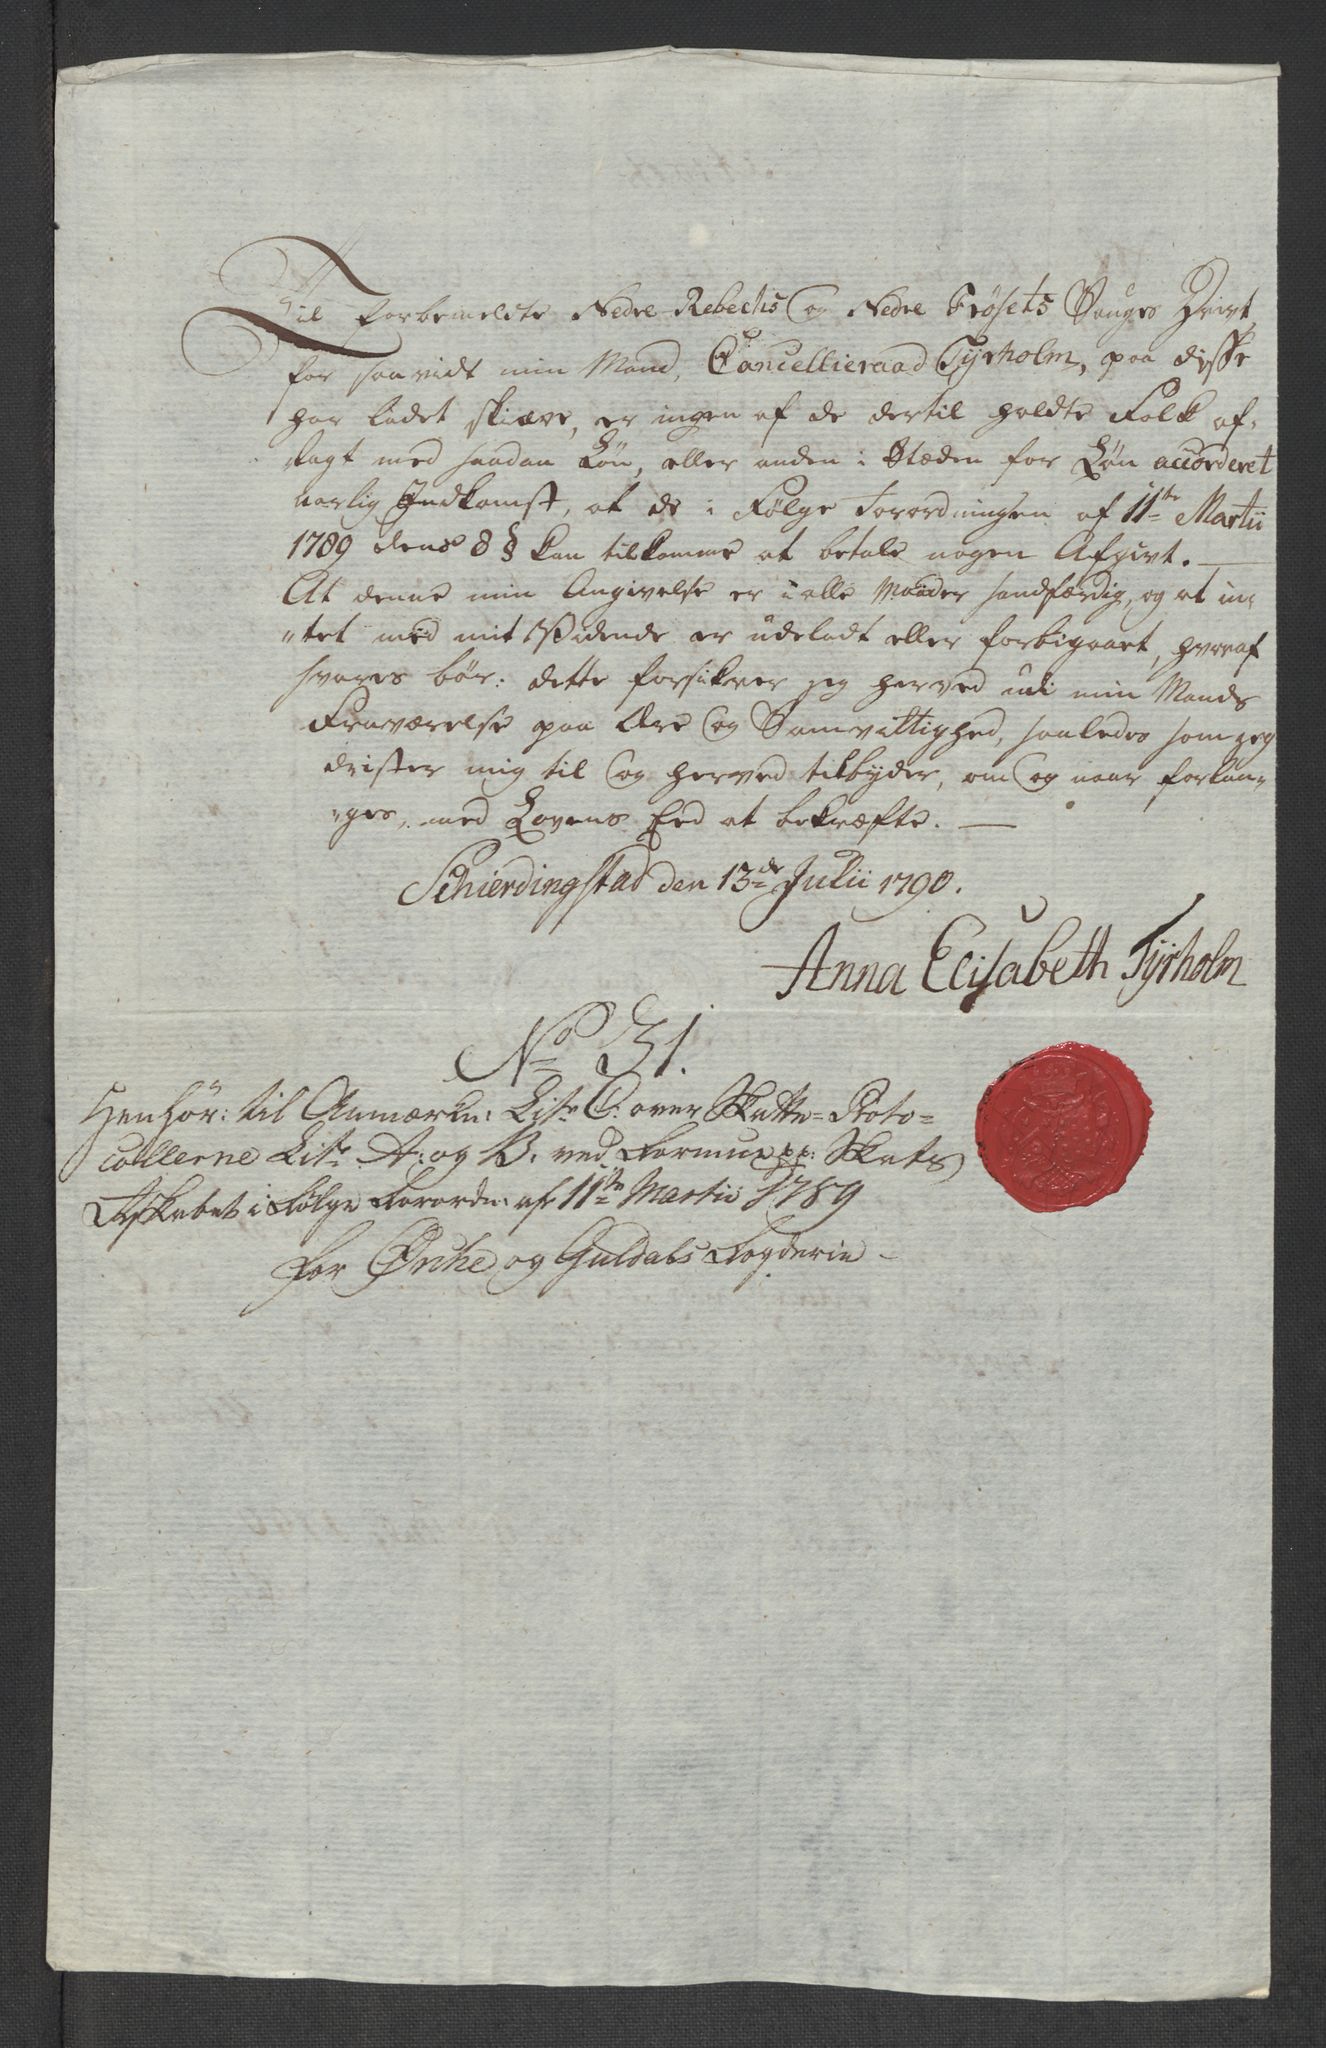 Til forbemeldte Nedre Rebechs og Nedre Frösets Sauges Drivt
for saavidt min Mand, Cancellieraad Tyrholm, paa disse
har ladet skiære, er ingen af de dertil holdte Folk af-
lagt med saadan Løn, eller anden i Stæden for Løn accorderet
aarlig Indkomst, at de i Følge Forordningen af 11te Martii
1789 dens 8 § kan tilkomme at betale nogen Afgivt.
At denne min Angivelse er i alle Maader sandfærdig, og at in-
"tet med mit Vidende er udeladt eller forbigaaet, hvoraf
svares bør: dette forsikrer jeg herved udi min Mands
Fraværelse paa Ære og Samvittighed, saaledes som jeg
drister mig til og herved tilbyder, om og naar forlan-
"ges, med Lovens Eed at bekræfte.
Schierdingstad den 13de Julii 1790.
Anna Elisabeth Tyrholm
No 31.
Henhör: til Anmærkn: Litr C: over Skatte-Proto-
collerne Litr A: og B. ved Formue pp: Skats
Regnskabet i Følge Forordn: af 11te Martii 1789
for Örche og Guldals Fogderie